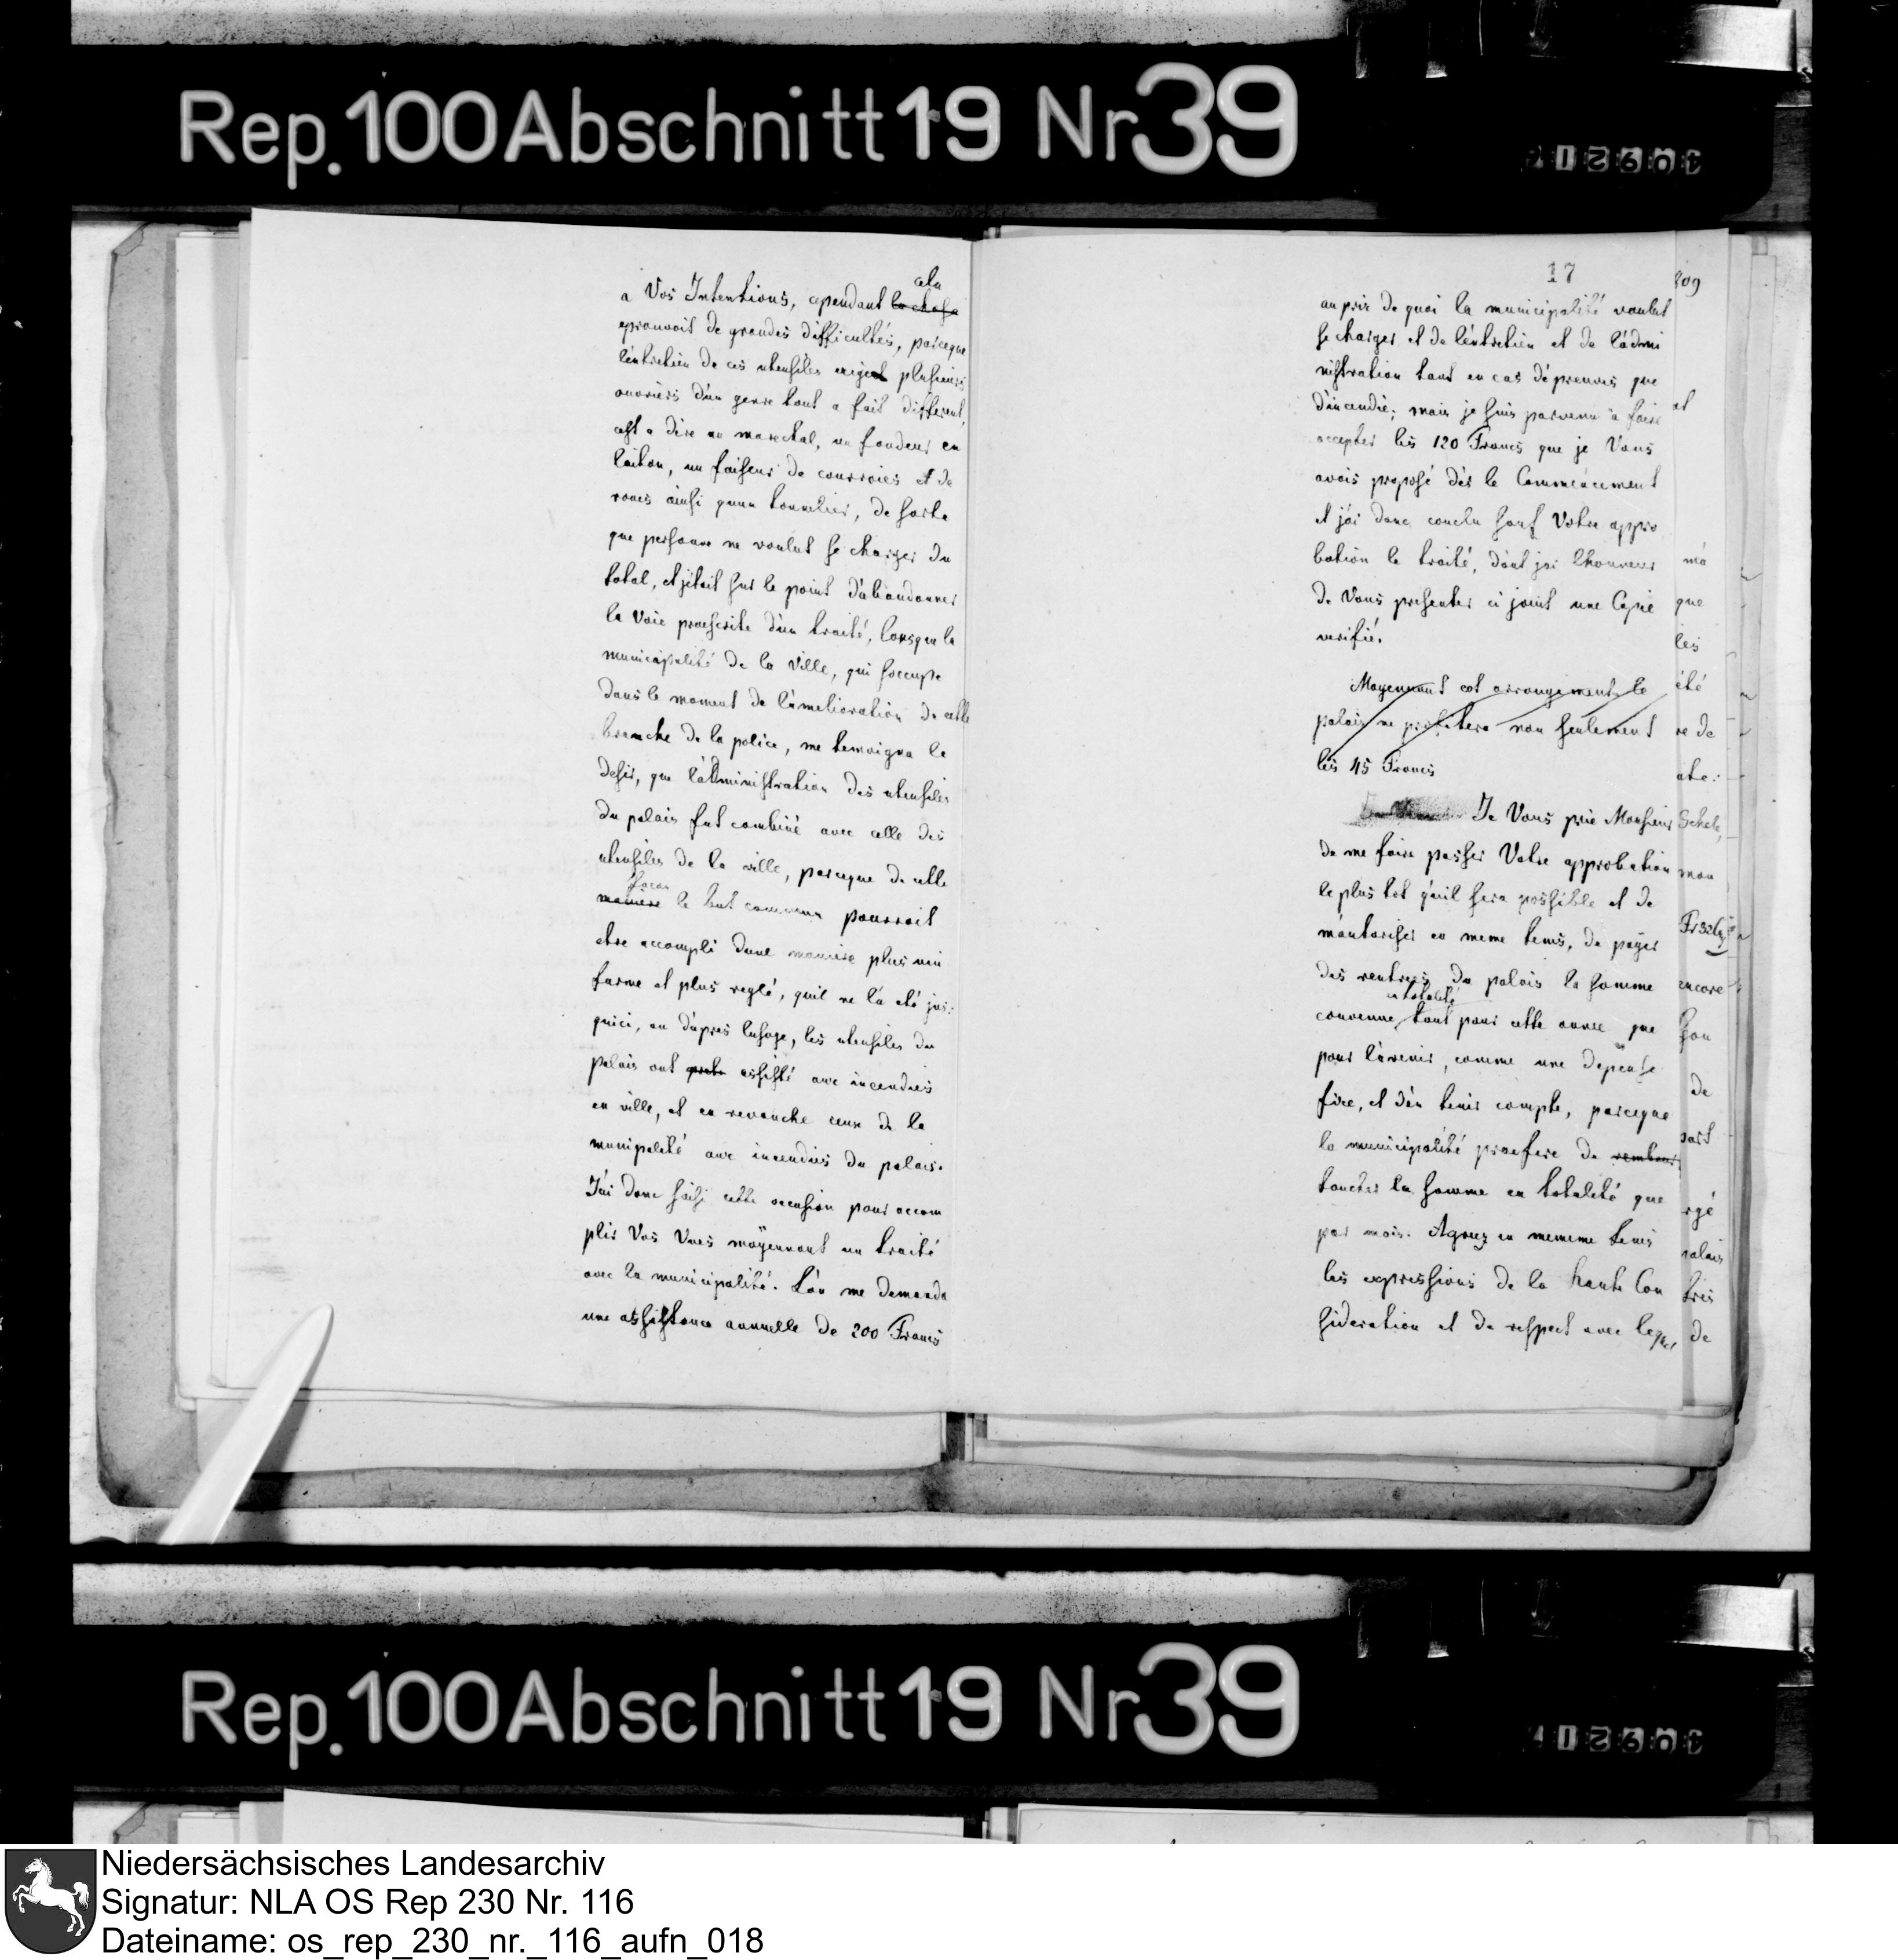 Rep.100 Abschnitt 19 Nr 39
cela
a Vos Intentions, cependant la chose
eprouvoit de grandes difficultés, parceque
l'entretien de ces utensiles exigent plusieurs
ouvriers d'un genre tout a fait different,
cest a dire un marechal, un fondeur en
laiton, un faiseur de courroies et de
roues ainsi quun tonnelier, de sorte
que personne ne voulut se charger du
total, et j'etait sur le point d'abandonner
la Voie praescrite d'un traité, lorsque la
municipalité de la Ville, qui s'occupe
dans le moment de l'amelioration de cette
branche de la police, me temoigna le
desir, que l'administration des utensiles
du palais fut combiné avec celle des
utensiles de la ville, parceque de cette
facon
maniere le but commun pourroit
etre accompli dune maniere plus uni
forme et plus reglé, quil ne l'a eté jus:
quici, ou d'apres lusage, les utensiles du
palais ont assisté aux incendies
en ville, et en revanche ceux de la
municipalité aux incendies du palais.
J'ai donc saisi cette occasion pour accom
plir Vos Vues moÿennant un traité
avec la municipalité. L'on me demanda
une assistance annuelle de 200 Francs
17
809
au prix de quoi la municipalité voulut
se charger et de l'entretien et de l'admi
nistration tant en cas d'epreuves que
d'incendie; mais je suis parvenu à faire
accepter les 120 Francs que je Vous
avois proposé dès le Commencement
et j'ai donc conclu sauf Votre appro
bation le traité, dont jai lhonneur
de Vous presenter ci joint une Copie
verifié.
Moyennant cet arrangement le
palais ne profitera non seulement
les 45 Francs
Je Vous prie Monsieur
de me faire passer Votre approbation
le plus tot quil sera possible et de
m'autoriser en meme tems, de payer
des rentrees du palais la somme
en totalité
convenue, tant pour cette annee que
pour l'avenir, comme une depense
fixe, et d'en tenir compte, parceque
la municipalité praefere de rembour
toucher la somme en totalité que
par mois. Agreez en mememe tems
les expressions de la haute Con
sideration et du respect avec lequel
et
ma
que
les
été
re de
ate:
Schele,
mon
encore
son
de
part
rgé
palais
tres
de
Rep.100 Abschnitt 19 Nr 39
Niedersächsisches Landesarchiv
Signatur: NLA OS Rep 230 Nr. 116
Dateiname: os_rep_230_nr._116_aufn_018